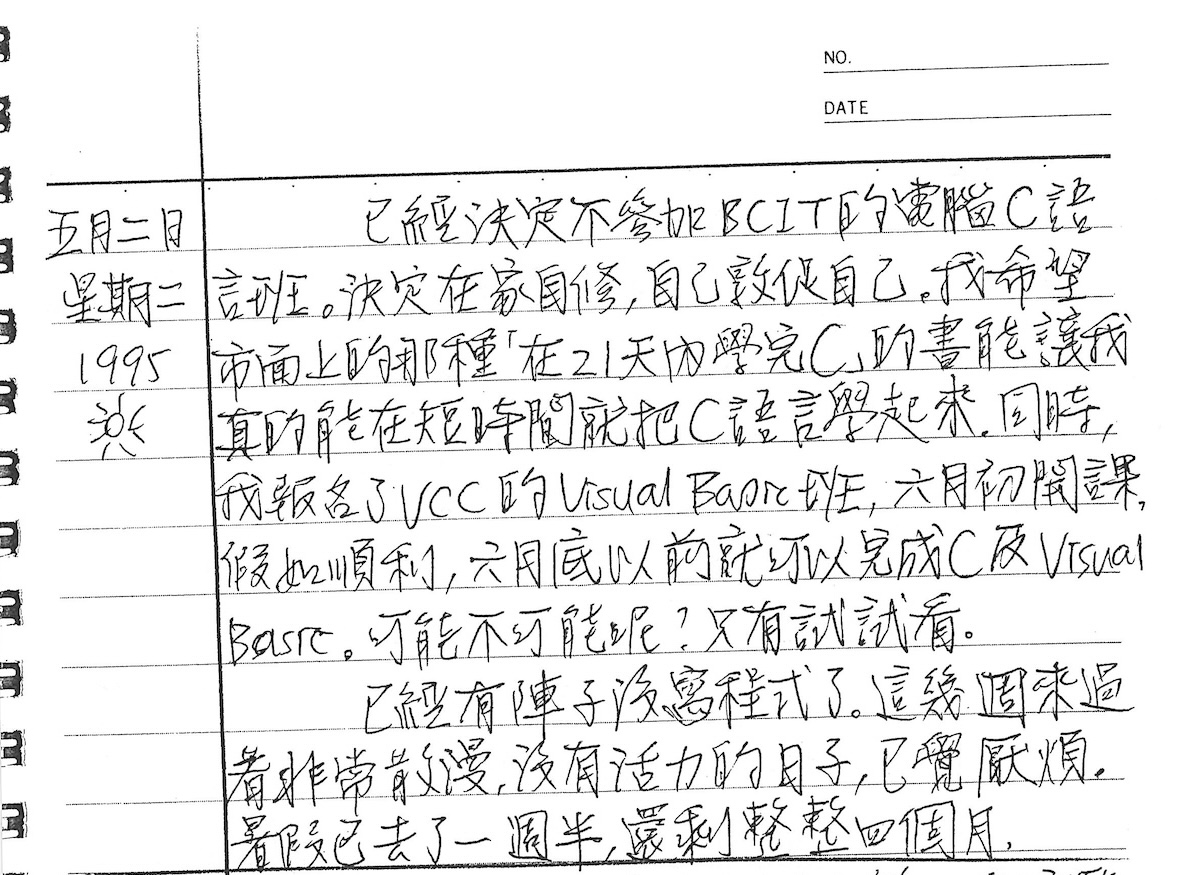 NO.
DATE
五月二日
星期二
1995
已經決定不參加BCIT的電腦C語
言班。決定在家自修,自己敦促自己。我希望
市面上的那種「在21天內學完C」的書能讓我
真的能在短時間就把C語言學起來。同時,
我報名了VCC的Visual Basic班,六月初開課,
假如順利,六月底以前就可以完成C及Visual
Basic。可能不可能呢?只有試試看。
已經有陣子沒寫程式了。這幾週來過
着非常散漫,沒有活力的日子,已覺厭煩。
暑假已去了一週半,還剩整整四個月,